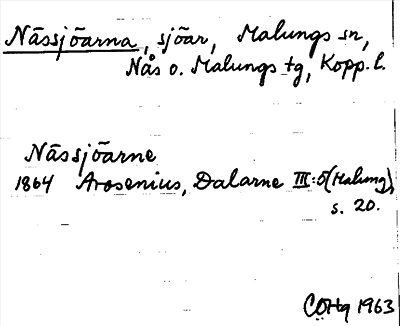 Nässjöarna, sjöar, Malungs sn,
Nås o. Malungs tg, Kopp. l.
Nässjöarne
1864 Arosenius, Dalarne III:5 (Malung),
s. 20.
CÖHg 1963